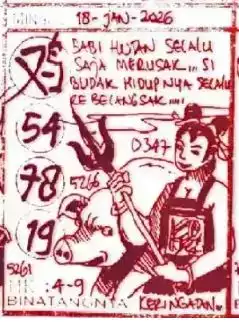 MINGGU 18-JAN-2026
BABI HUTAN SELALU
SAJA MERUSAK... SI
BUDAK HIDUPNYA SELALU
KEBELANGSAK....
54
0347
98
5266
19
5261
HK :4-9
BINATANGNYA KEPINGADAN.